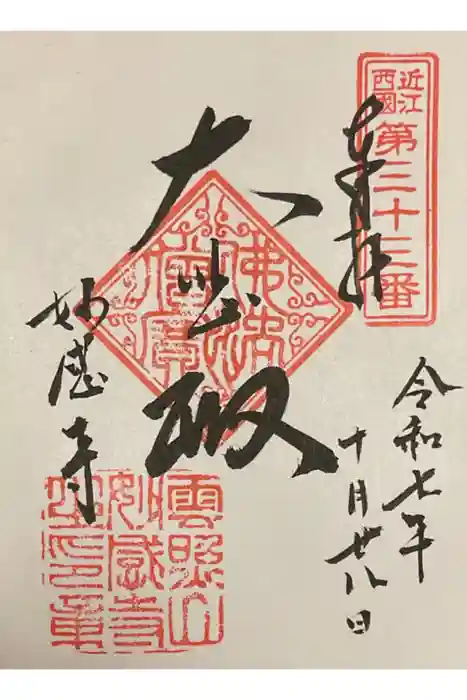 近江
西國
第三十三番
奉拝
令和七年
十月廿八日
大悲殿
佛法僧寶
妙感寺
雲照山
妙感寺